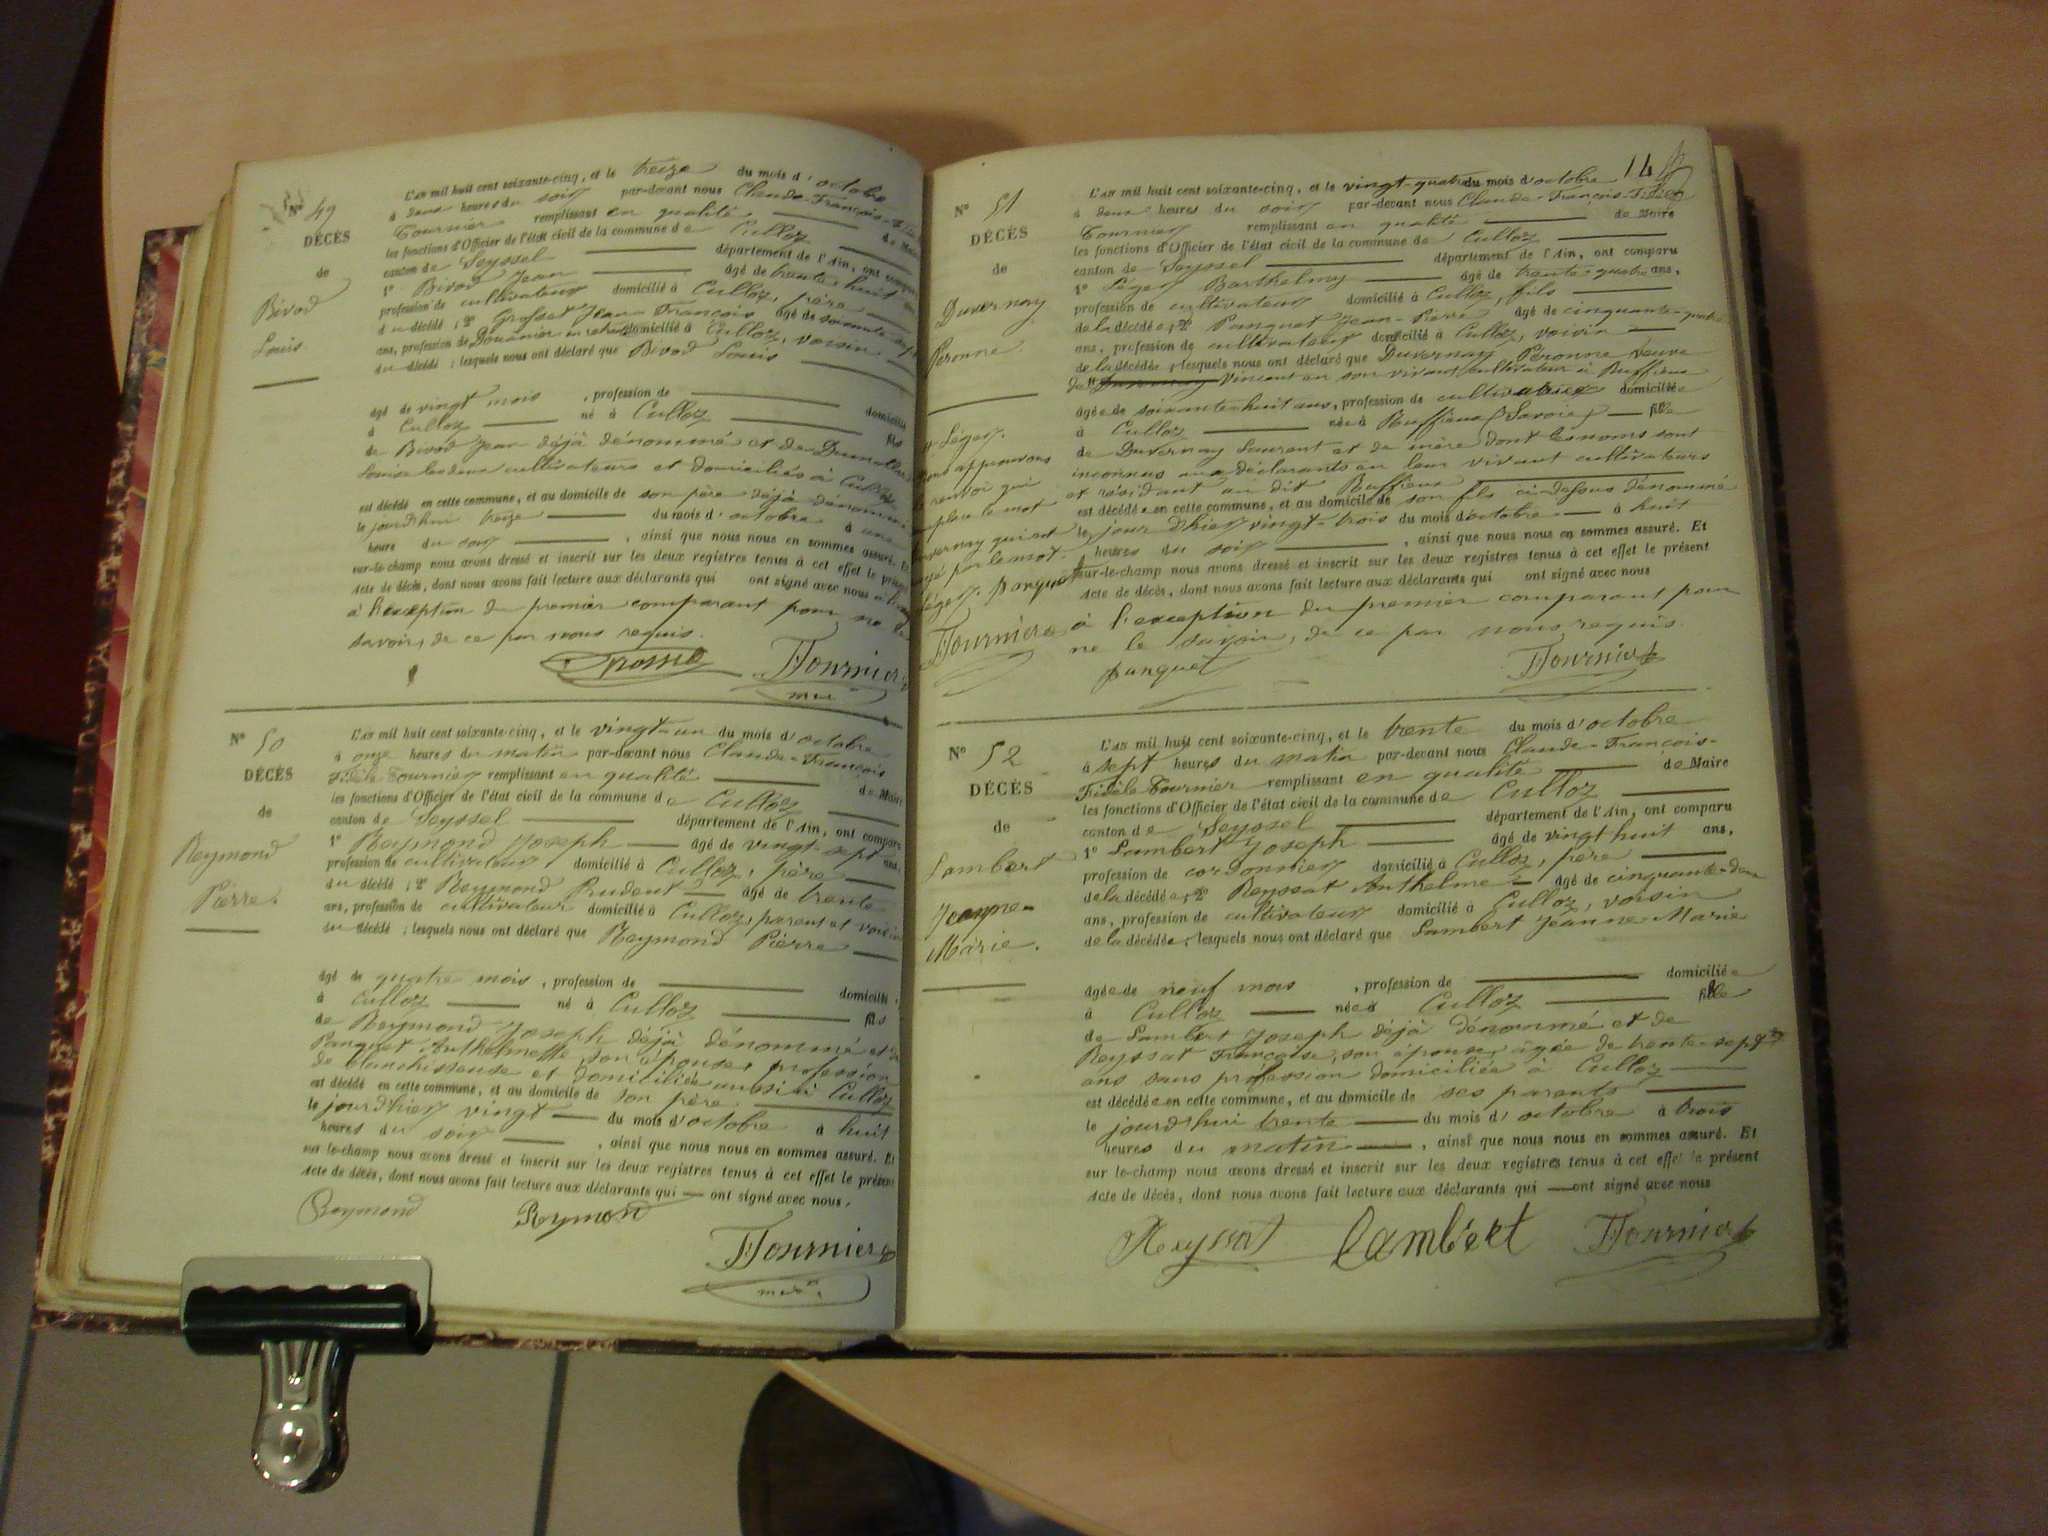 Nº 49
DÉCÈS
de
Bivod
Louis
L'an mil huit cent soixante-cinq, et le treize du mois d'octobre
à deux heures du soir par-devant nous Claude-François-
Tournier remplissant en qualité de Maire
les fonctions d'Officier de l'état civil de la commune de Culloz
canton de Seyssel département de l'Ain, ont comparu
1º Bivod Jean âgé de trente-huit ans
profession de cultivateur domicilié à Culloz, père
du décédé ; 2º Grosset Jean François âgé de soixante-sept
ans, profession de Douanier en retraite domicilié à Culloz, voisin
du décédé ; lesquels nous ont déclaré que Bivod Louis
âgé de vingt mois , profession de domicilié
à Culloz né à Culloz fils
de Bivod Jean déjà dénommé et de
Louise les deux cultivateurs et domiciliés à Culloz
est décédé en cette commune, et au domicile de son père déjà dénommé
le jourd'hui treize du mois d'octobre à une
heure du soir , ainsi que nous nous en sommes assuré. Et
sur-le-champ nous avons dressé et inscrit sur les deux registres tenus à cet effet le présent
Acte de décès, dont nous avons fait lecture aux déclarants qui ont signé avec nous
à l'exception du premier comparant pour ne le
savoir, de ce par nous requis.
Fournier
Nº 50
DÉCÈS
de
Reymond
Pierre.
L'an mil huit cent soixante-cinq, et le vingt-un du mois d'octobre
à onze heures du matin par-devant nous Claude-François
Fidèle Tournier remplissant en qualité de Maire
les fonctions d'Officier de l'état civil de la commune de Culloz
canton de Seyssel département de l'Ain, ont comparu
1º Reymond Joseph âgé de vingt-sept ans,
profession de cultivateur domicilié à Culloz, père
du décédé ; 2º Reymond Prudent âgé de trente
ans, profession de cultivateur domicilié à Culloz, parent et voisin
du décédé ; lesquels nous ont déclaré que Reymond Pierre
âgé de quatre mois , profession de domicilié
à Culloz né à Culloz fils
de Reymond Joseph déjà dénommé et de
Panquet Anthelmette son épouse, profession
de blanchisseuse et domiciliée aussi à Culloz
est décédé en cette commune, et au domicile de son père.
le jour d'hier vingt du mois d'octobre à huit
heures du soir , ainsi que nous nous en sommes assuré. Et
sur-le-champ nous avons dressé et inscrit sur les deux registres tenus à cet effet le présent
Acte de décès, dont nous avons fait lecture aux déclarants qui ont signé avec nous.
Reymond Reymond
Fournier
14
Nº 51
DÉCÈS
de
Duvernay
Péronne
L'an mil huit cent soixante-cinq, et le vingt-quatre du mois d'octobre
à deux heures du soir par-devant nous Claude-François-Fidèle
Tournier remplissant en qualité de Maire
les fonctions d'Officier de l'état civil de la commune de Culloz
canton de Seyssel département de l'Ain, ont comparu
1º Léger Barthelmy âgé de trente-quatre ans,
profession de cultivateur domicilié à Culloz, fils
de la décédée ; 2º Panquet Jean-Pierre âgé de cinquante-quatre
ans, profession de cultivateur domicilié à Culloz, voisin
de la décédée ; lesquels nous ont déclaré que Duvernay Péronne veuve
de Vincent en son vivant cultivateur à Ruffieux
âgée de soixante-huit ans, profession de cultivatrice domiciliée
à Culloz née à Ruffieux (Savoie) fille
de Duvernay Laurent et de mère dont les noms sont
inconnus aux déclarants en leur vivant cultivateurs
et résidant au dit Ruffieux
est décédée en cette commune, et au domicile de son fils ci-dessus dénommé
le jour d'hier vingt-trois du mois d'octobre à huit
heures du soir , ainsi que nous nous en sommes assuré. Et
sur-le-champ nous avons dressé et inscrit sur les deux registres tenus à cet effet le présent
Acte de décès, dont nous avons fait lecture aux déclarants qui ont signé avec nous
à l'exception du premier comparant pour
ne le savoir, de ce par nous requis.
panquet Fournier
Léger.
approuvons
renvoi qui
le mot
qui est
par le mot
Léger. panquet
Fournier
Nº 52
DÉCÈS
de
Lambert
Jeanne-
Marie.
L'an mil huit cent soixante-cinq, et le trente du mois d'octobre
à sept heures du matin par-devant nous Claude-François-
Fidèle Tournier remplissant en qualité de Maire
les fonctions d'Officier de l'état civil de la commune de Culloz
canton de Seyssel département de l'Ain, ont comparu
1º Lambert Joseph âgé de vingt huit ans,
profession de cordonnier domicilié à Culloz, père
de la décédée ; 2º Reyssat Anthelme âgé de cinquante-deux
ans, profession de cultivateur domicilié à Culloz, voisin
de la décédée ; lesquels nous ont déclaré que Lambert Jeanne-Marie
âgée de neuf mois , profession de domiciliée
à Culloz née à Culloz fille
de Lambert Joseph déjà dénommé et de
Reyssat Françoise, son épouse, âgée de trente-sept
ans sans profession domiciliée à Culloz
est décédée en cette commune, et au domicile de ses parents
le jourd'hui trente du mois d'octobre à trois
heures du matin , ainsi que nous nous en sommes assuré. Et
sur-le-champ nous avons dressé et inscrit sur les deux registres tenus à cet effet le présent
Acte de décès, dont nous avons fait lecture aux déclarants qui ont signé avec nous
Reyssat Lambert Fournier